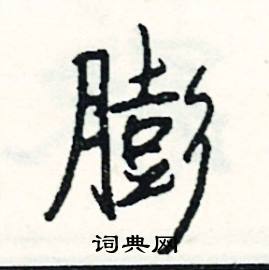 膨
词典网